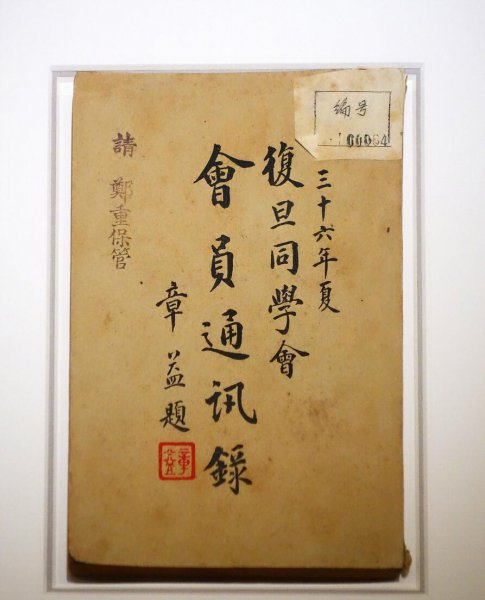 编号
00064
三十六年夏
復旦同學會
會員通訊錄
章益題
章益
請鄭重保管